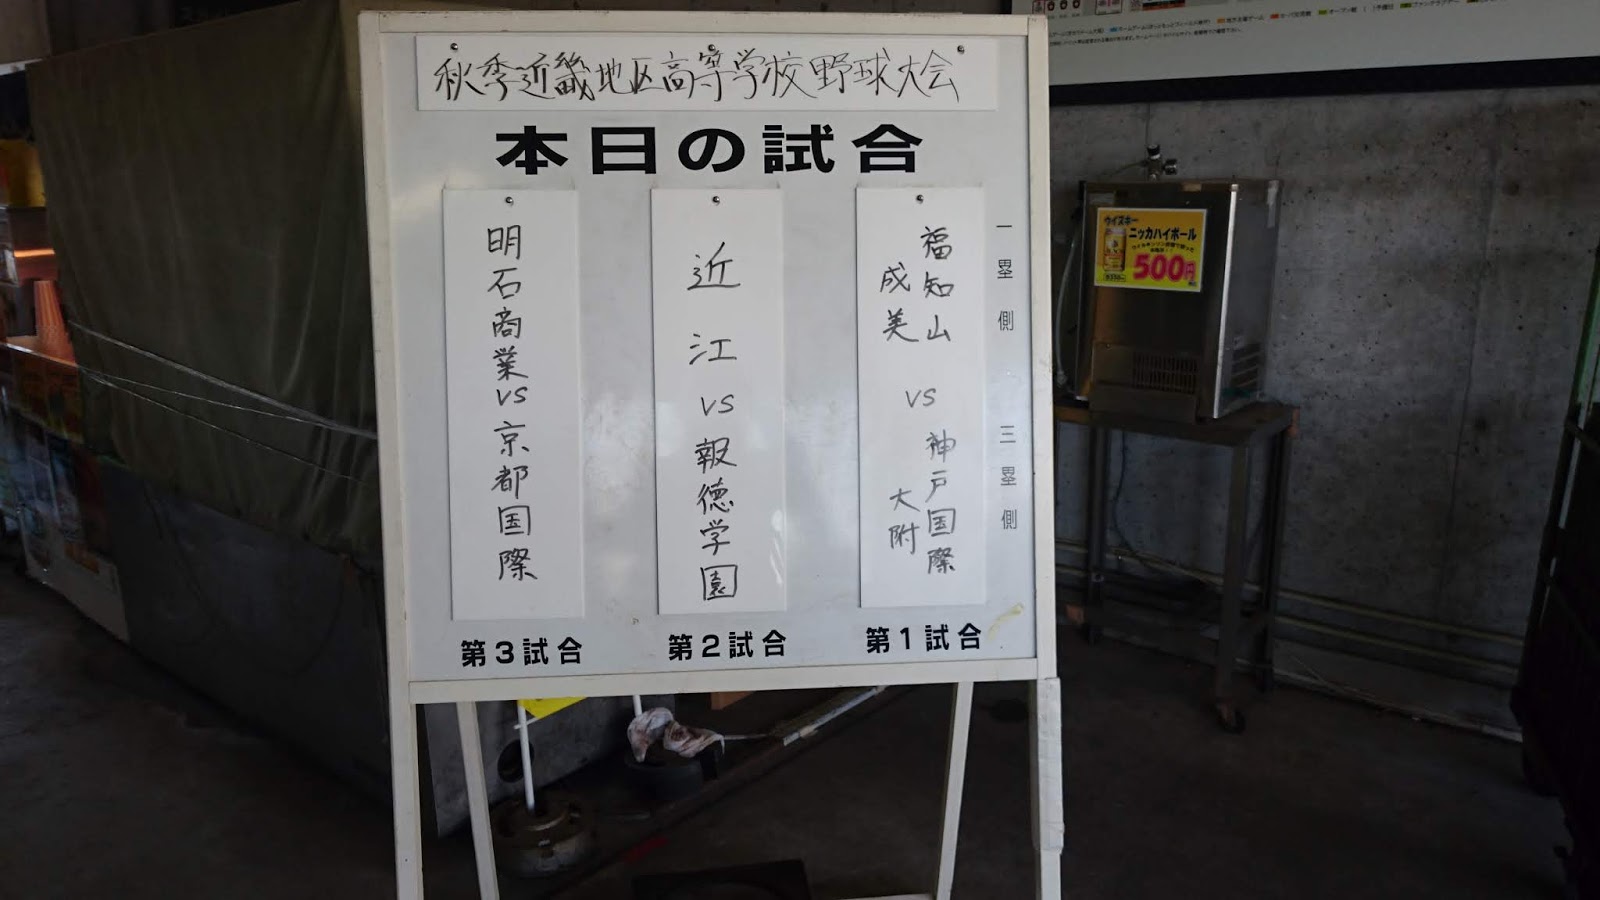 秋季近畿地区高等学校野球大会
本日の試合
一塁側
三塁側
福知山
成美
vs
神戸国際
大附
第1試合
近江
vs
報徳学園
第2試合
明石商業
vs
京都国際
第3試合
ウイスキー
ニッカハイボール
500円